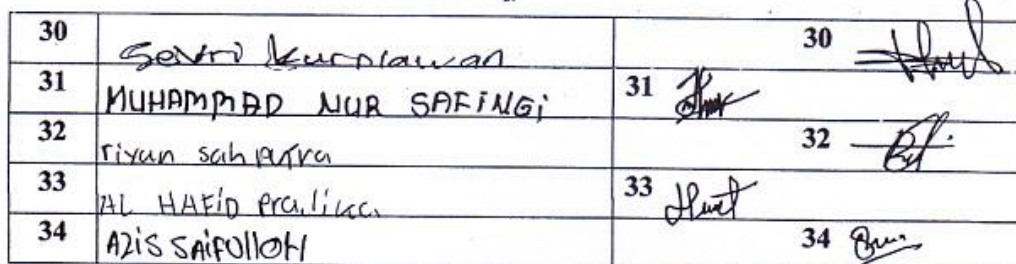 30 Sevri Kurniawan 30
31 MUHAMMAD NUR SAFINGI 31
32 riyan sahputra 32
33 AL HAFID Pratika 33
34 AZIS SAIFULLOH 34